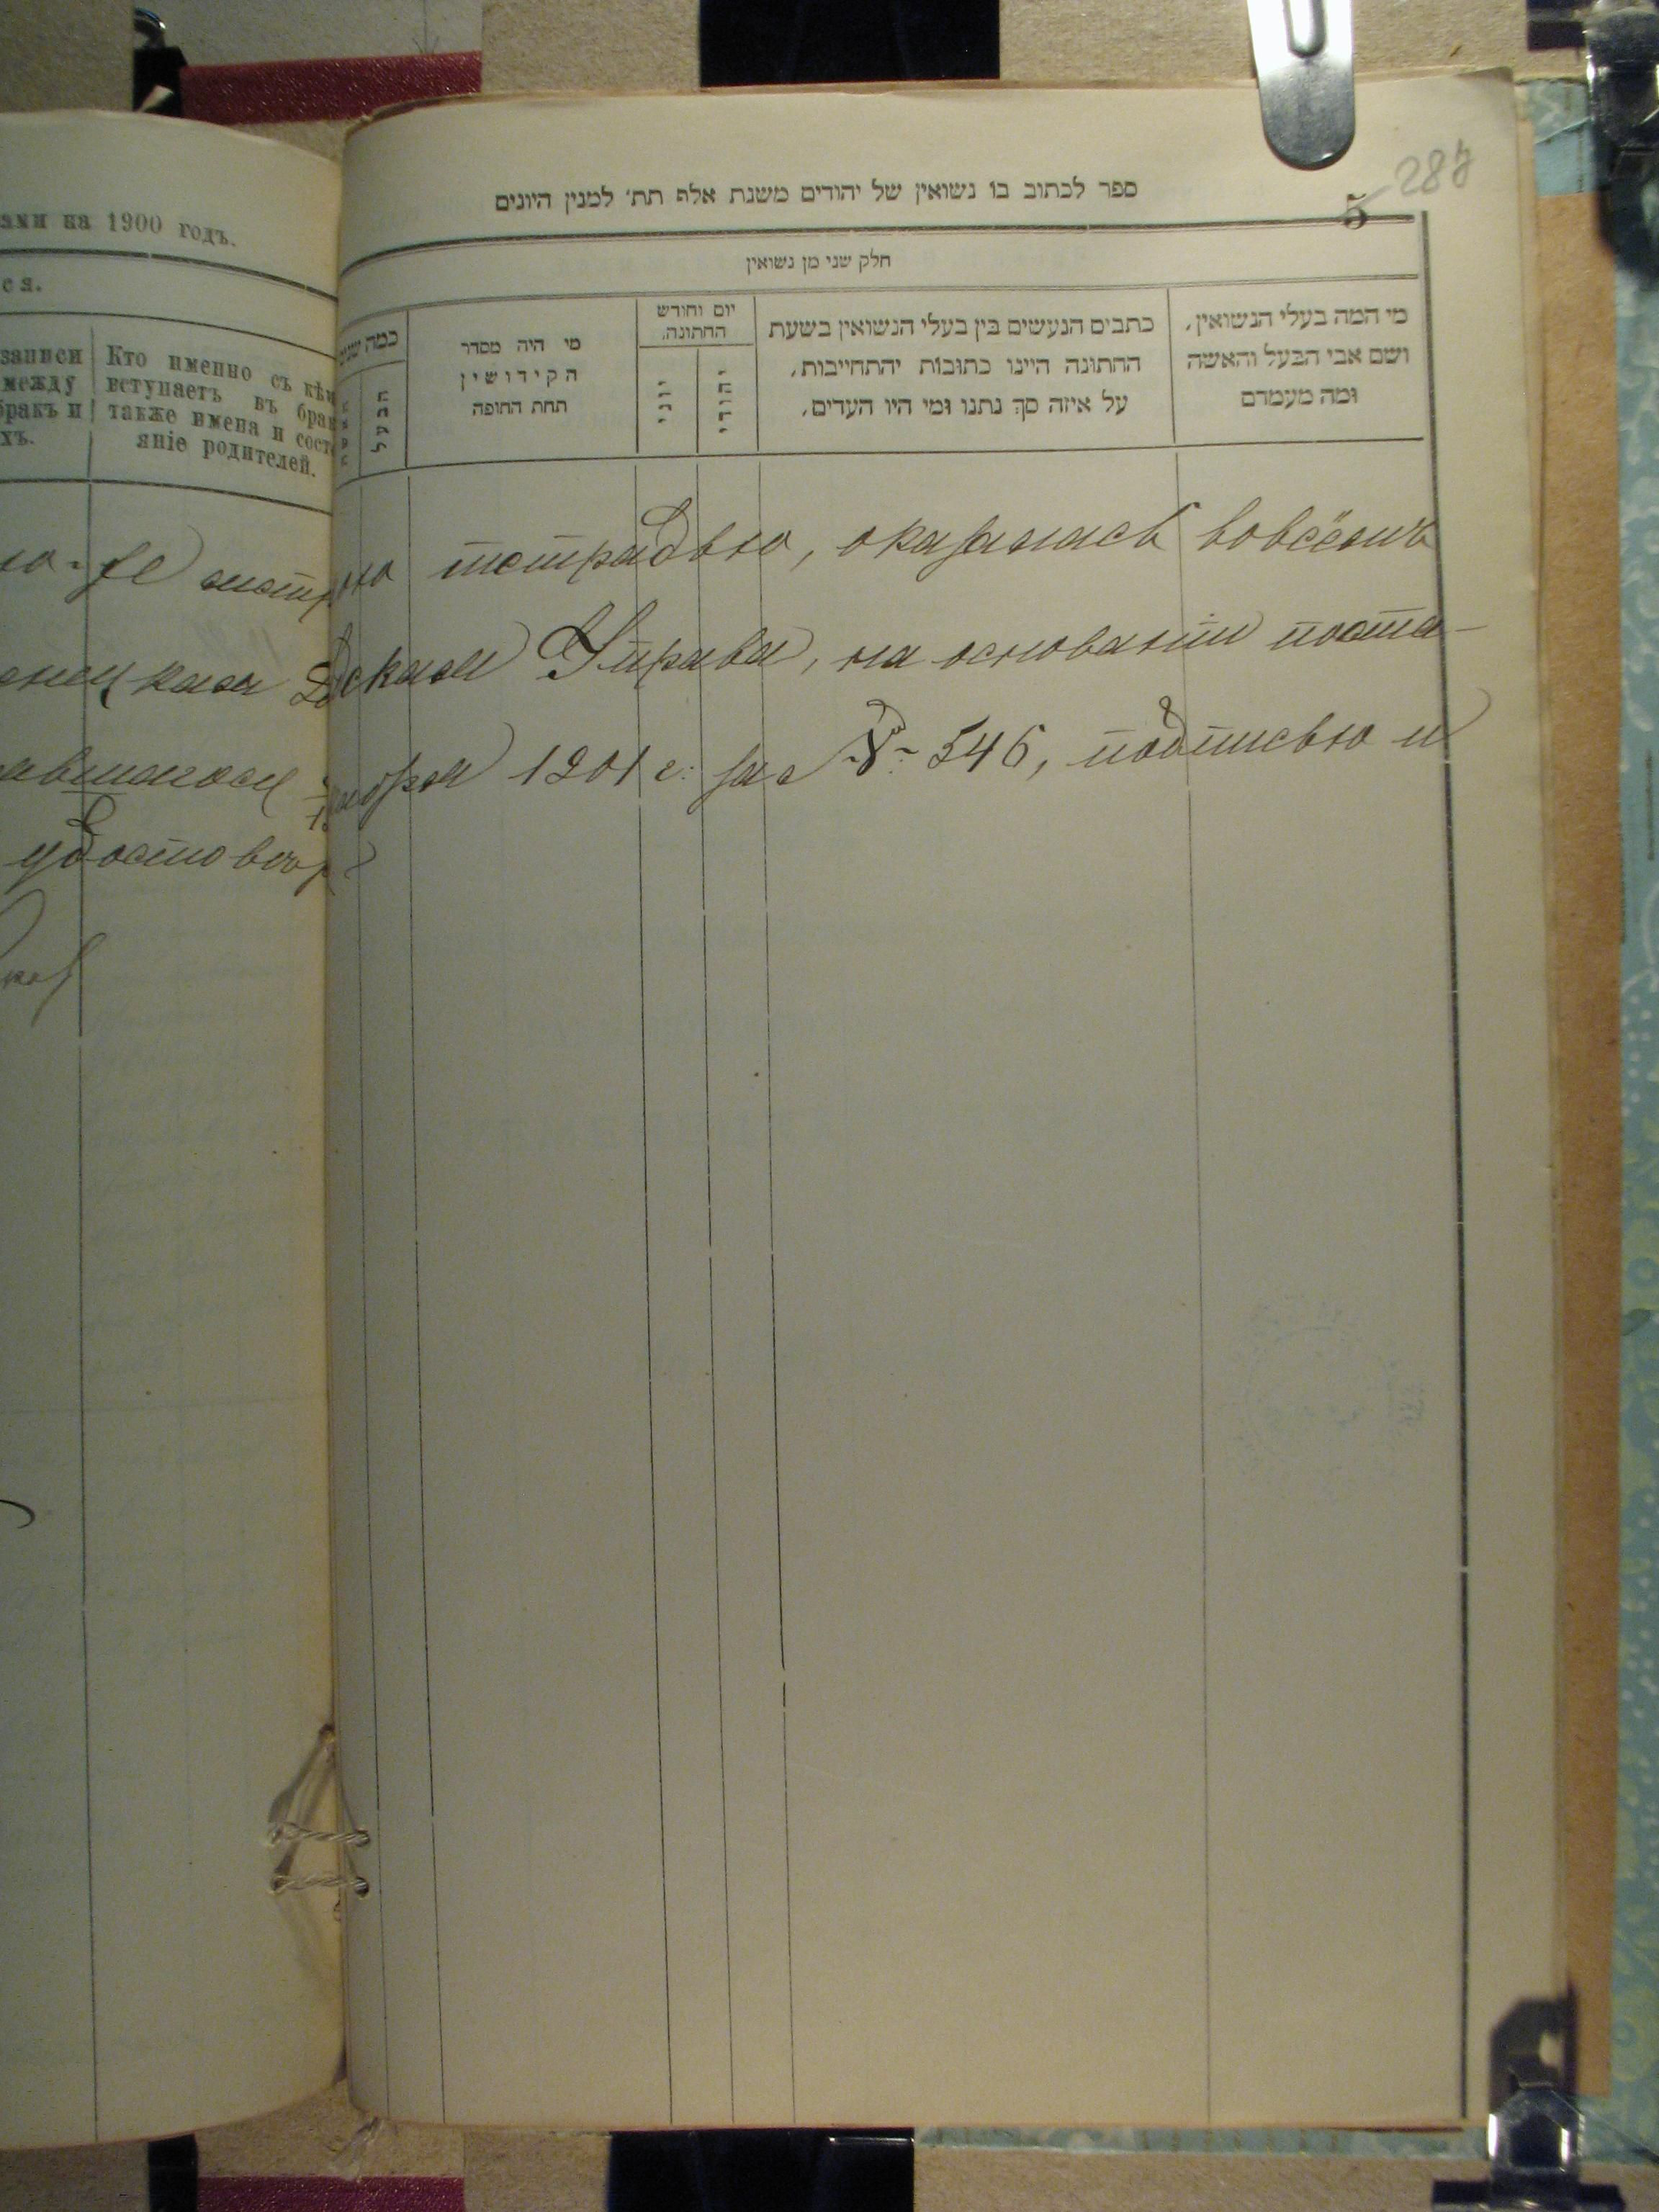 ами на 1900 годъ.
ся.
записи
между
бракъ и
хъ.
Кто именно съ кѣм
вступаетъ въ брак
также имена и состо
яніе родителей.
287
5
ספר לכתוב בו נשואין של יהודים משנת אלף תת׳ למנין היונים
חלק שני מן נשואין
מי המה בעלי הנשואין,
ושם אבי הבעל והאשה
ומה מעמדם
כתבים הנעשים בין בעלי הנשואין בשעת
החתונה היינו כתובות יהתחייבות,
על איזה סך נתנו ומי היו העדים,
יום וחודש
החתונה.
יהודי
יוני
מי היה מסדר
הקידושין
תחת החופה
כמה שנים
הבעל
тетрадью, оказалась вовсемъ
дская Управа, на основаніи поста-
1901 г. за № 546, подписью и
удостовѣр